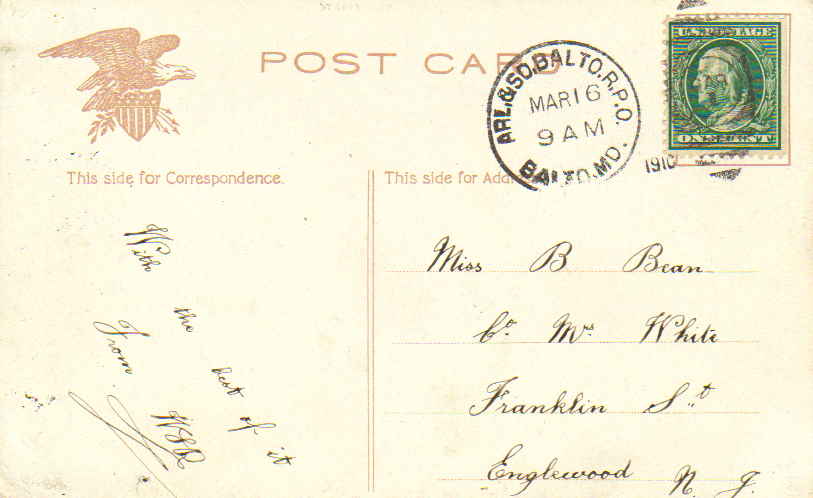 POST CARD
ARL.&SO.BALTO.R.P.O.
MAR 16
9 AM
BALTO.MD.
1910
U.S. POSTAGE
This side for Correspondence.
This side for Add
With the best of it
From
Miss B Bean
Co Mrs White
Franklin St
Englewood N. J